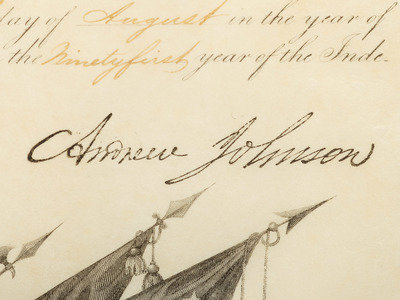 day of August in the year of
the Ninetyfirst year of the Inde-
Andrew Johnson